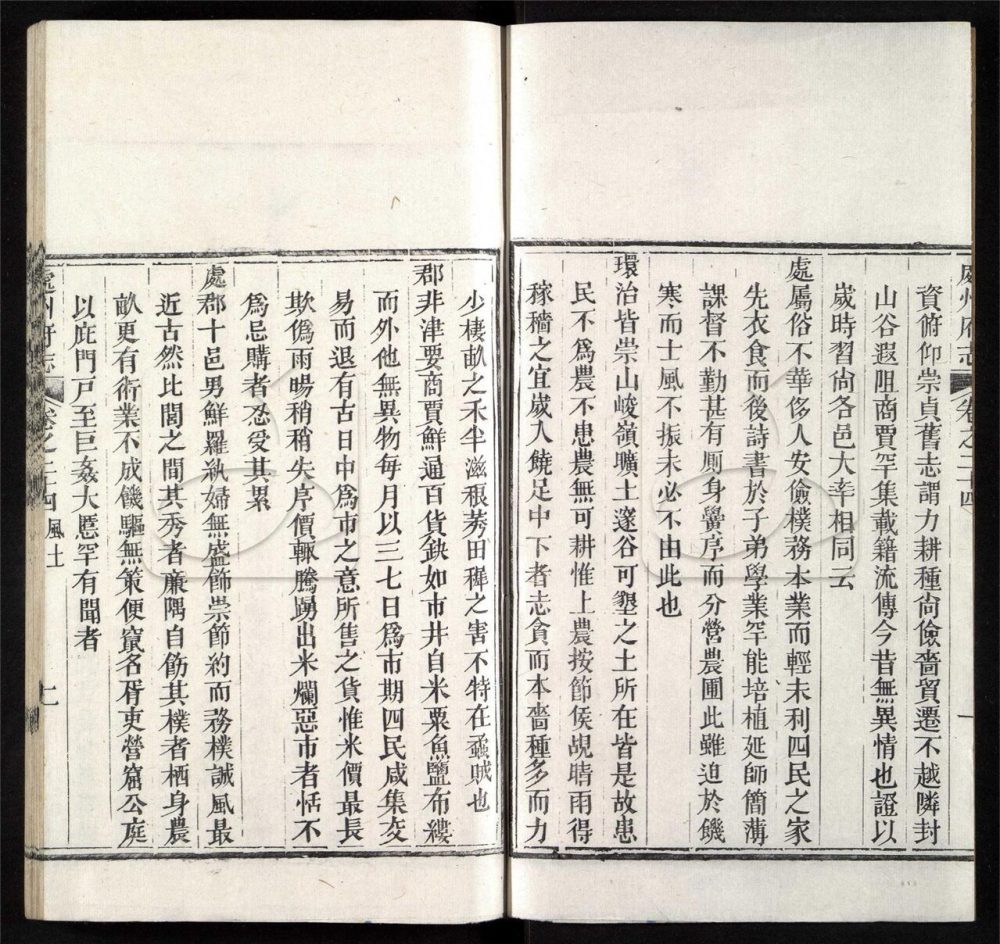 處州府志 卷之二十四
資俯仰崇貞舊志謂力耕種尙儉嗇貿遷不越隣封
山谷遐阻商賈罕集載籍流傳今昔無異情也證以
歲時習尙各邑大幸相同云
處屬俗不華侈人安儉樸務本業而輕末利四民之家
先衣食而後詩書於子弟學業罕能培植延師簡薄
課督不勤甚有厠身黌序而分營農圃此雖迫於饑
寒而士風不振未必不由此也
環治皆崇山峻嶺曠土邃谷可墾之土所在皆是故患
民不爲農不患農無可耕惟上農按節侯覘晴雨得
稼穡之宜歲入饒足中下者志貪而本嗇種多而力
少棲畝之禾半滋稂莠田穉之害不特在蟊賊也
郡非津要商賈鮮通百貨缺如市井自米粟魚鹽布縷
而外他無異物每月以三七日爲市期四民咸集交
易而退有古日中爲市之意所售之貨惟米價最長
欺僞雨暘稍稍失序價輒騰踴出米爛惡市者恬不
爲忌購者忍受其累
處郡十邑男鮮羅紈婦無盛飾崇節約而務樸誠風最
近古然比閭之間其秀者廉隅自飭其樸者栖身農
畝更有術業不成饑驅無策便竄名胥吏營窟公庭
以庇門戸至巨姦大慝罕有聞者
處州府志 卷之二十四 風土 七